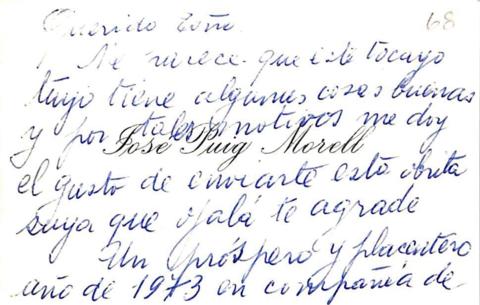 68
Querido Toño
Me parece que este tocayo
tuyo tiene algunas cosas buenas
y por tales motivos me doy
José Puig Morell
el gusto de enviarte esta obrita
suya que ojalá te agrade
Un próspero y placentero
año de 1973 en compañía de-